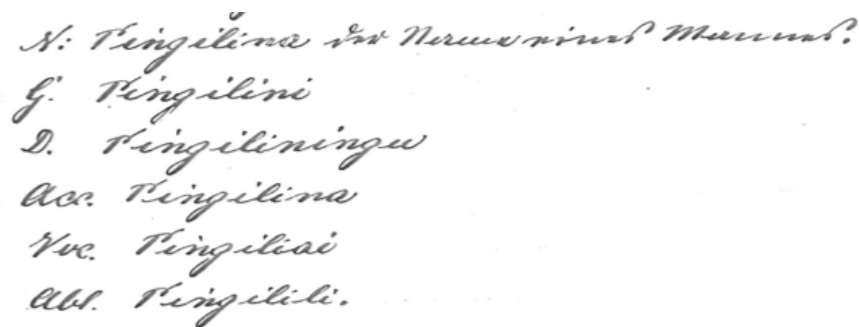 N: Pingilina der Name eines Mannes.
G. Pingilini
D. Pingiliningu
Acc. Pingilina
Voc. Pingiliai
Abl. Pingilili.